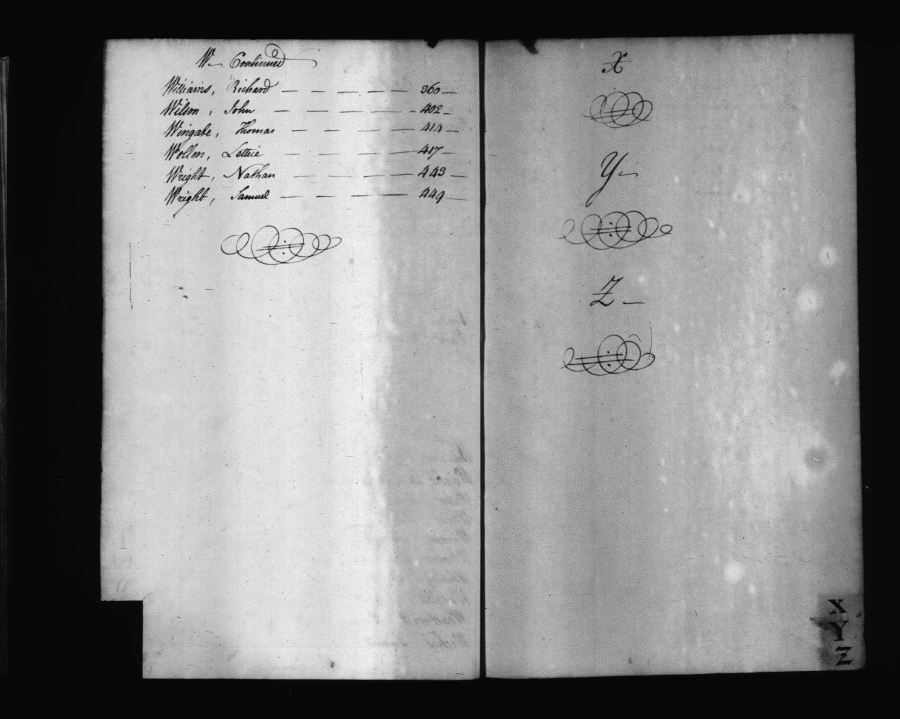 W— Continued
Williams, Richard — — — — — 360 —
Wilson, John — — — — — 402 —
Wingate, Thomas — — — — — 414 —
Wollen, Lettice — — — — — 417 —
Wright, Nathan — — — — — 443 —
Wright, Samuel — — — — — 449 —
X
Y —
Z —
X
Y
Z